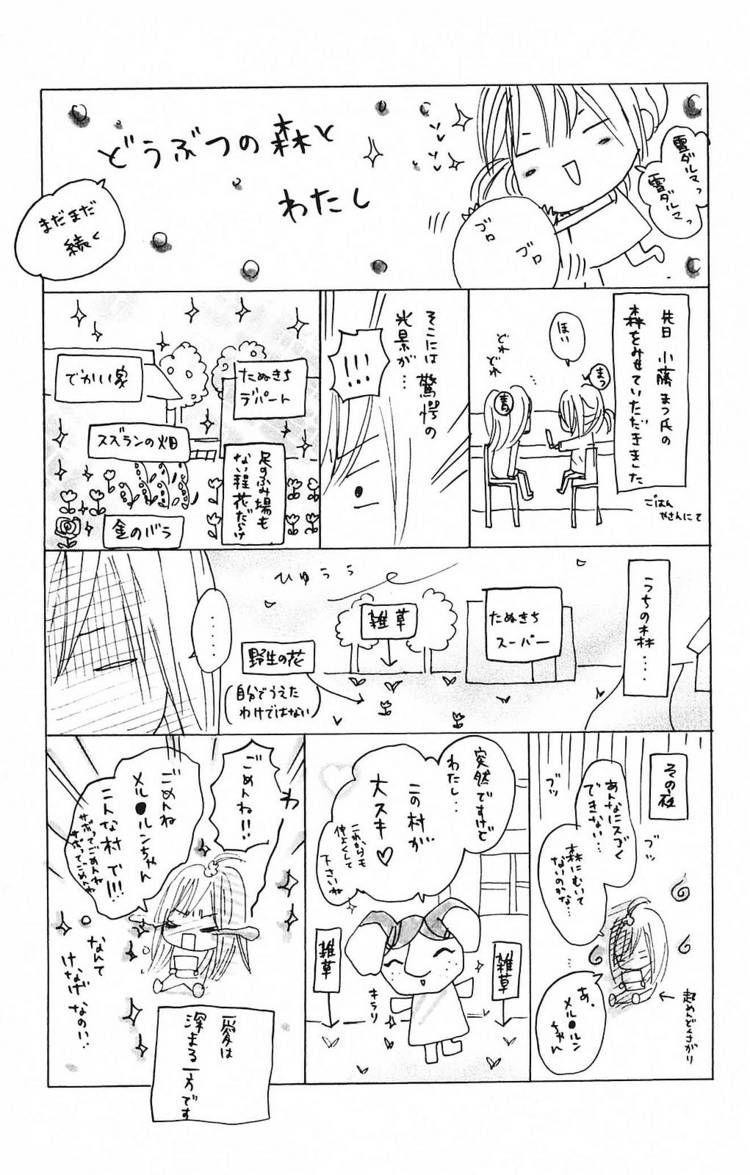 どうぶつの森と
わたし
雪ダルマっ
雪ダルマっ
ゴロ
ゴロ
まだまだ
続く
先日 小藤まつ氏の
森をみせていただきました
ごはん
やさんにて
まつ
ほい
どれ
どれ
そこには驚愕の
光景が…
!!!
でかい家
たぬきち
デパート
スズランの畑
足のふみ場も
ない程花だらけ
金のバラ
うちの森…
たぬきち
スーパー
雑草
ひゅうう
野生の花
(自分でうえた
わけではない)
‥‥
その夜
あんなにスゴく
できない…
森にむいて
ないのかな…
ブッ
ブッ
あ、
メル●ルン
ちゃん
突然ですけど
わたし…
この村が
大スキ♡
これからも
仲よくして
下さいね
雑草
雑草
キラリ
わ
ごめんね!!
ごめんね
メル●ルンちゃん
こんな村で!!!
サボっててごめんね
サボっててごめんね
なんて
けなげなの!!
愛は
深まる一方です